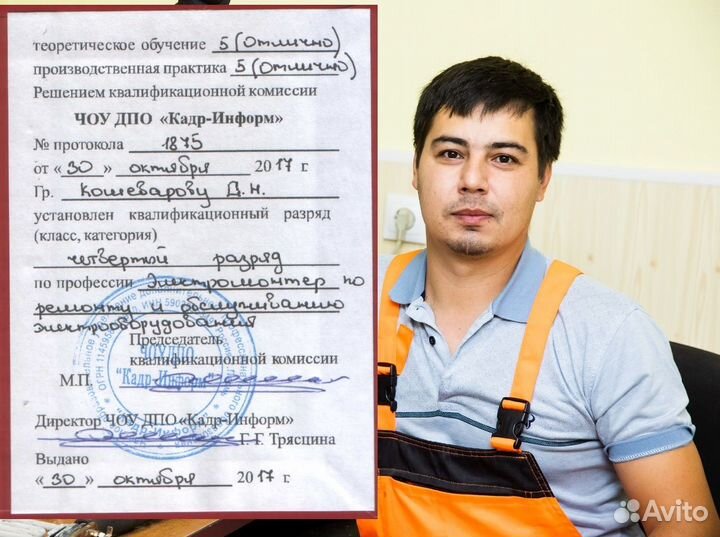 теоретическое обучение 5 (Отлично)
производственная практика 5 (Отлично)
Решением квалификационной комиссии
ЧОУ ДПО «Кадр-Информ»
№ протокола 1875
от «30» октября 2017 г.
Гр. Кошеварову Д.Н.
установлен квалификационный разряд
(класс, категория)
четвертой разряд
по профессии Электромонтер по
ремонту и обслуживанию
электрооборудования
Председатель
квалификационной комиссии
М.П.
ЧОУ ДПО
"Кадр-Информ"
Директор ЧОУ ДПО «Кадр-Информ»
Г. Г. Трясцина
Выдано
«30» октября 2017 г.
Avito